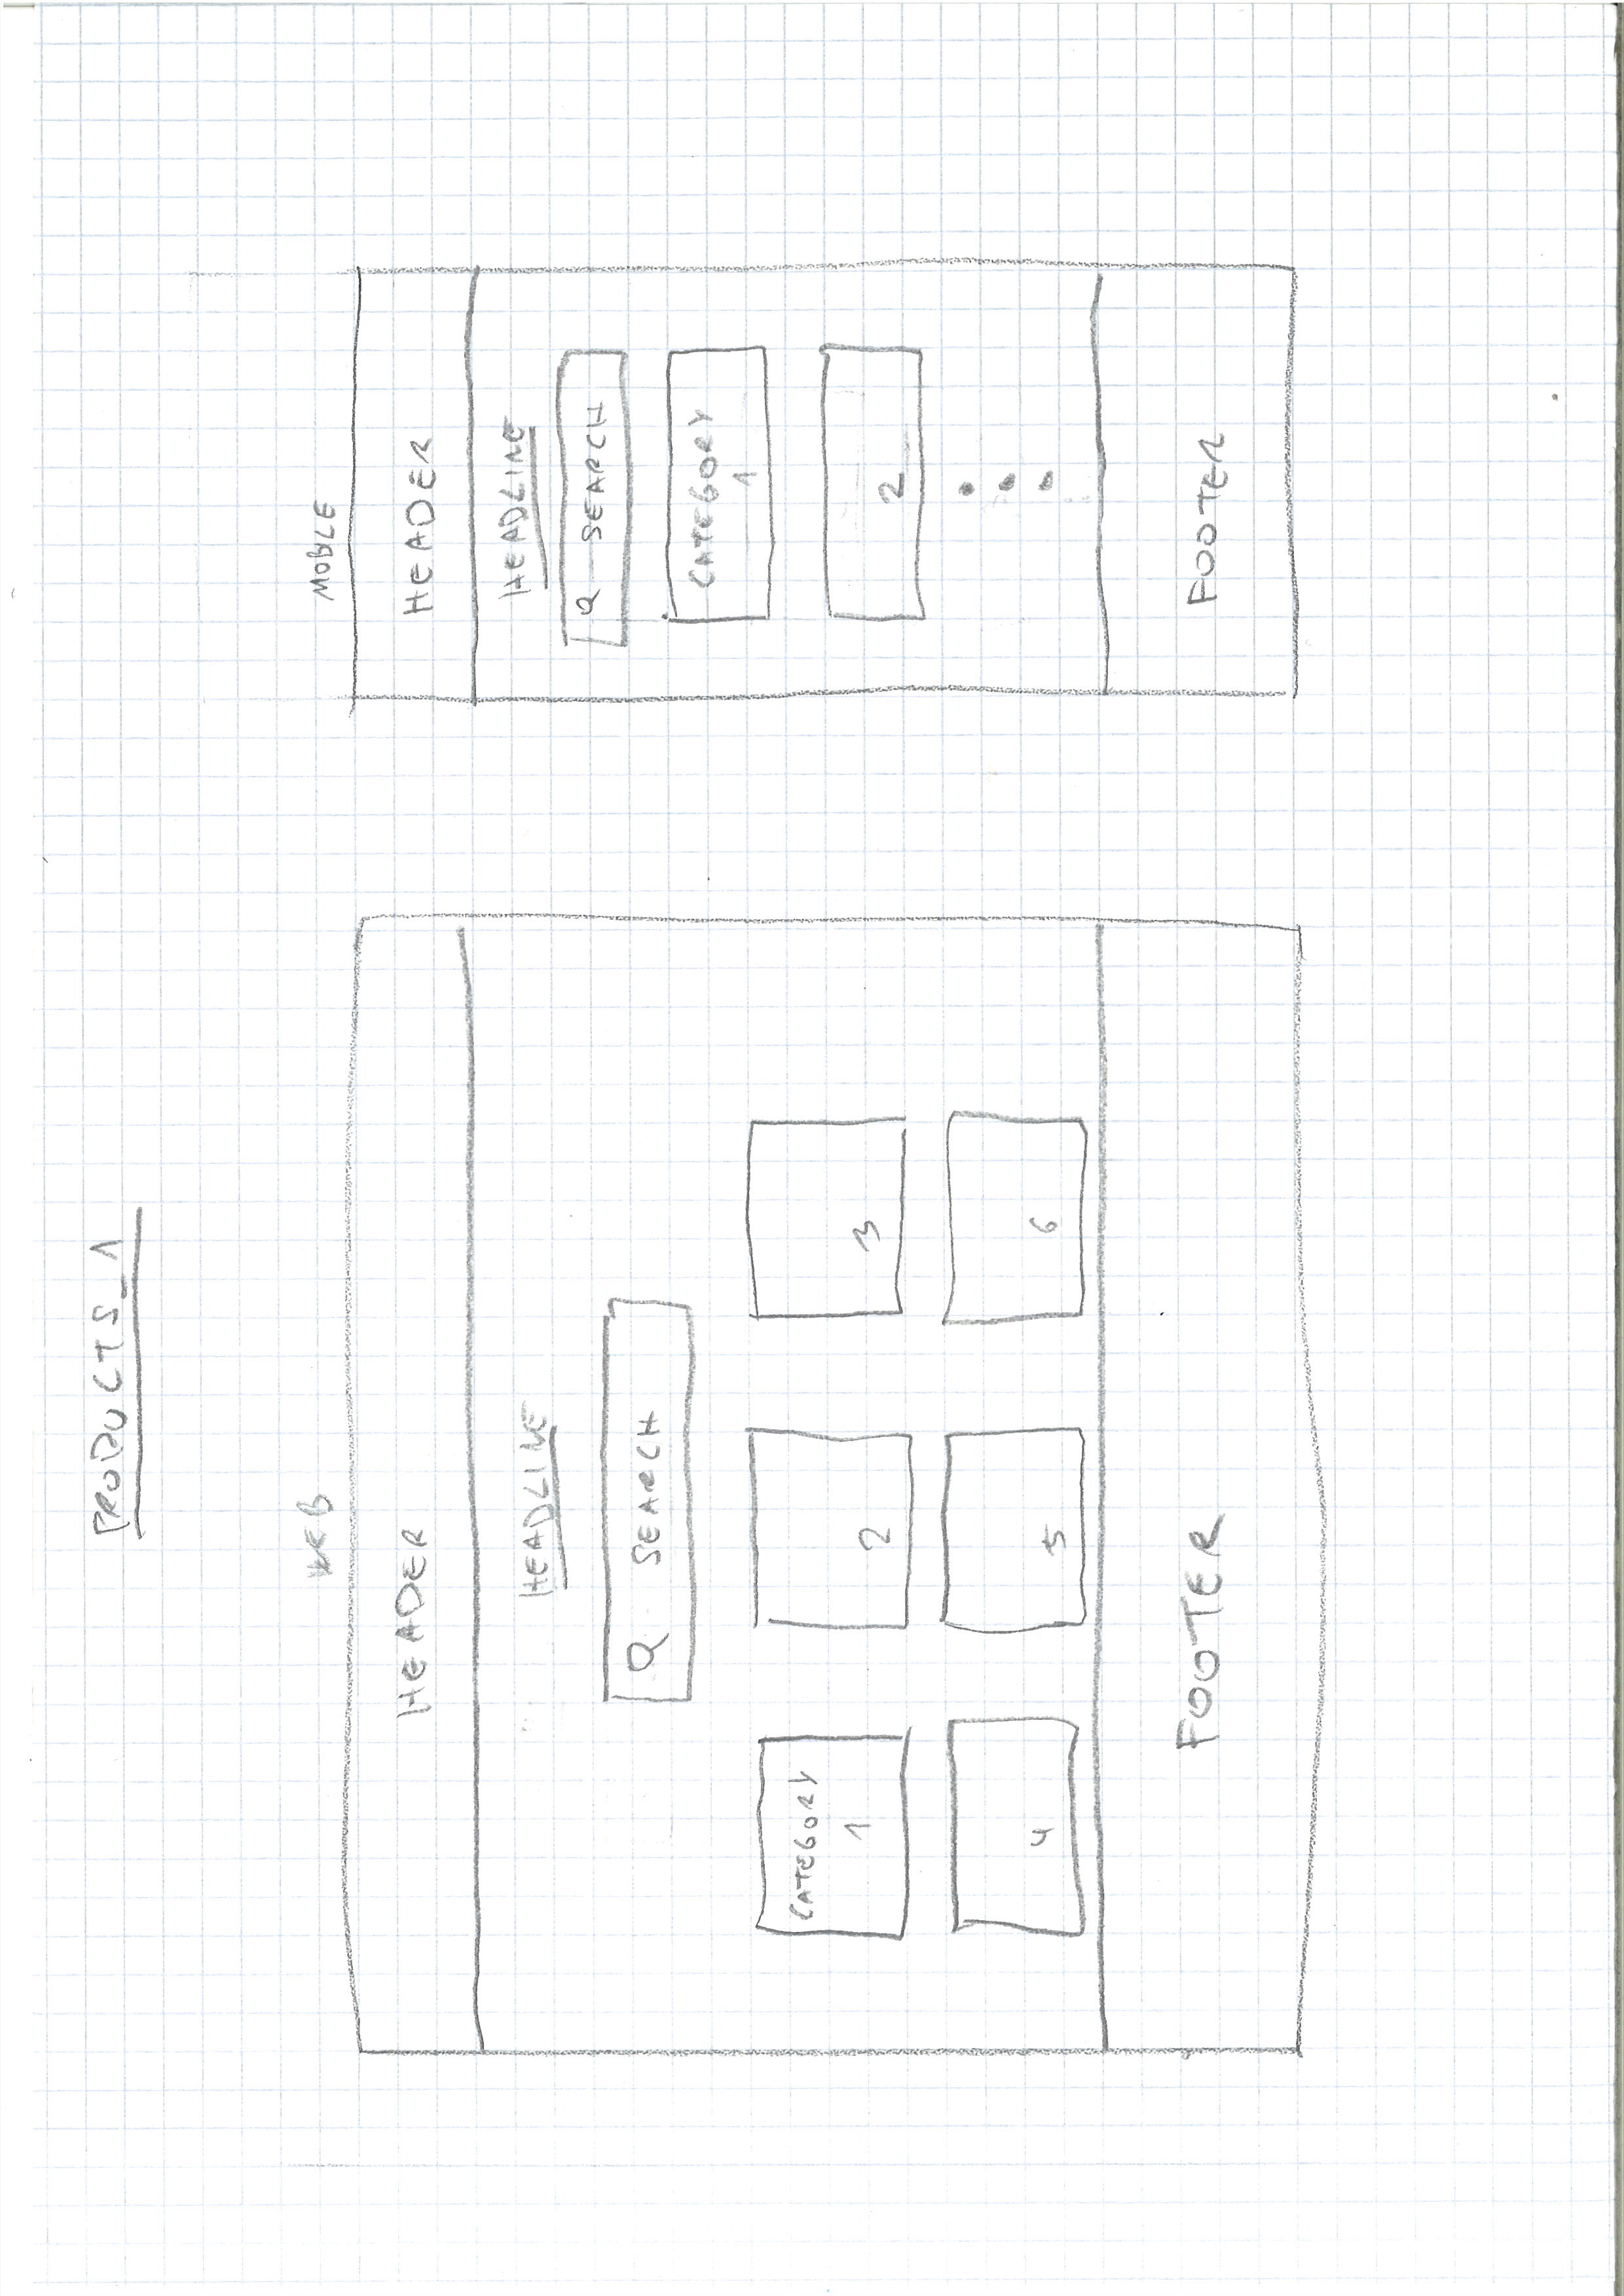 PRODUCTS_1
WEB
HEADER
HEADLINE
SEARCH
CATEGORY
1
2
3
4
5
6
FOOTER
MOBLE
HEADER
HEADLINE
SEARCH
CATEGORY
1
2
FOOTER